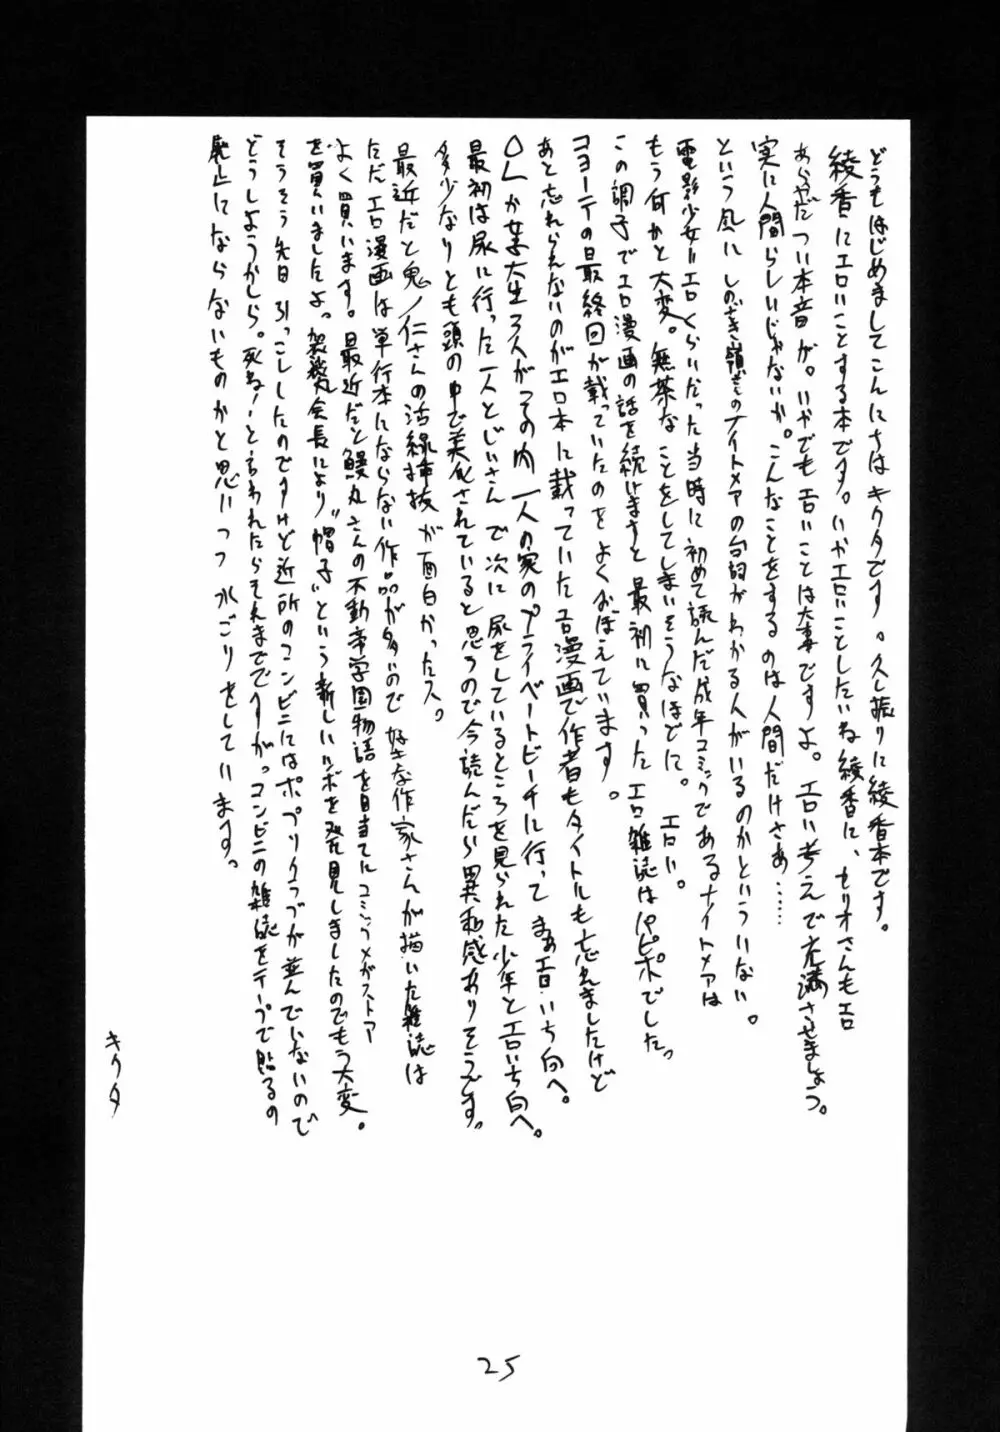 どうもはじめましてこんにちはキクタです。久し振りに綾香本です。
綾香にエロいことする本です。いやエロいことしたいね綾香に、セリオさんもエロ
あらやだつい本音が。いやでもエロいことは大事ですよ。エロい考えで充満させましょう。
実に人間らしいじゃないか。こんなことをするのは人間だけさぁ……
という風にしのざき嶺さんのナイトメアの台詞がわかる人がいるのかというない。
電影少女=エロくらいだった当時に初めて読んだ成年コミックであるナイトメアは
もう何かと大変。無茶なことをしてしまいそうなほどに。エロい。
この調子でエロ漫画の話を続けますと最初に買ったエロ雑誌はパピポでした。
コヨーテの最終回が載っていたのをよくおぼえています。
あと忘れられないのがエロ本に載っていたエロ漫画で作者もタイトルも忘れましたけど
OLか女子大生3人がその内一人の家のプライベートビーチに行ってまぁエロいち向へ。
最初は尿に行った一人とじいさんで次に尿をしているところを見られた少年とエロいち向へ。
多少なりとも頭の中で美化されていると思うので今読んだら異和感ありそうです。
最近だと鬼ノ仁さんの活線挿抜が面白かったス。
ただエロ漫画は単行本にならない作品が多いので好きな作家さんが描いた雑誌は
よく買います。最近だと鰻丸さんの不動帝学園物語を目当てにコミックメガストア
を買いましたよ。袈裟丸会長により"帽子"という新しいツボを発見しましたのでもう大変。
そうそう先日引っこししたのですけど近所のコンビニにはポプリクラブが並んでいないので
どうしようかしら。死ね！と言われたらそれまでですが。コンビニの雑誌をテープで貼るの
廃止にならないものかと思いつつ水ごりをしています。
キクタ
25